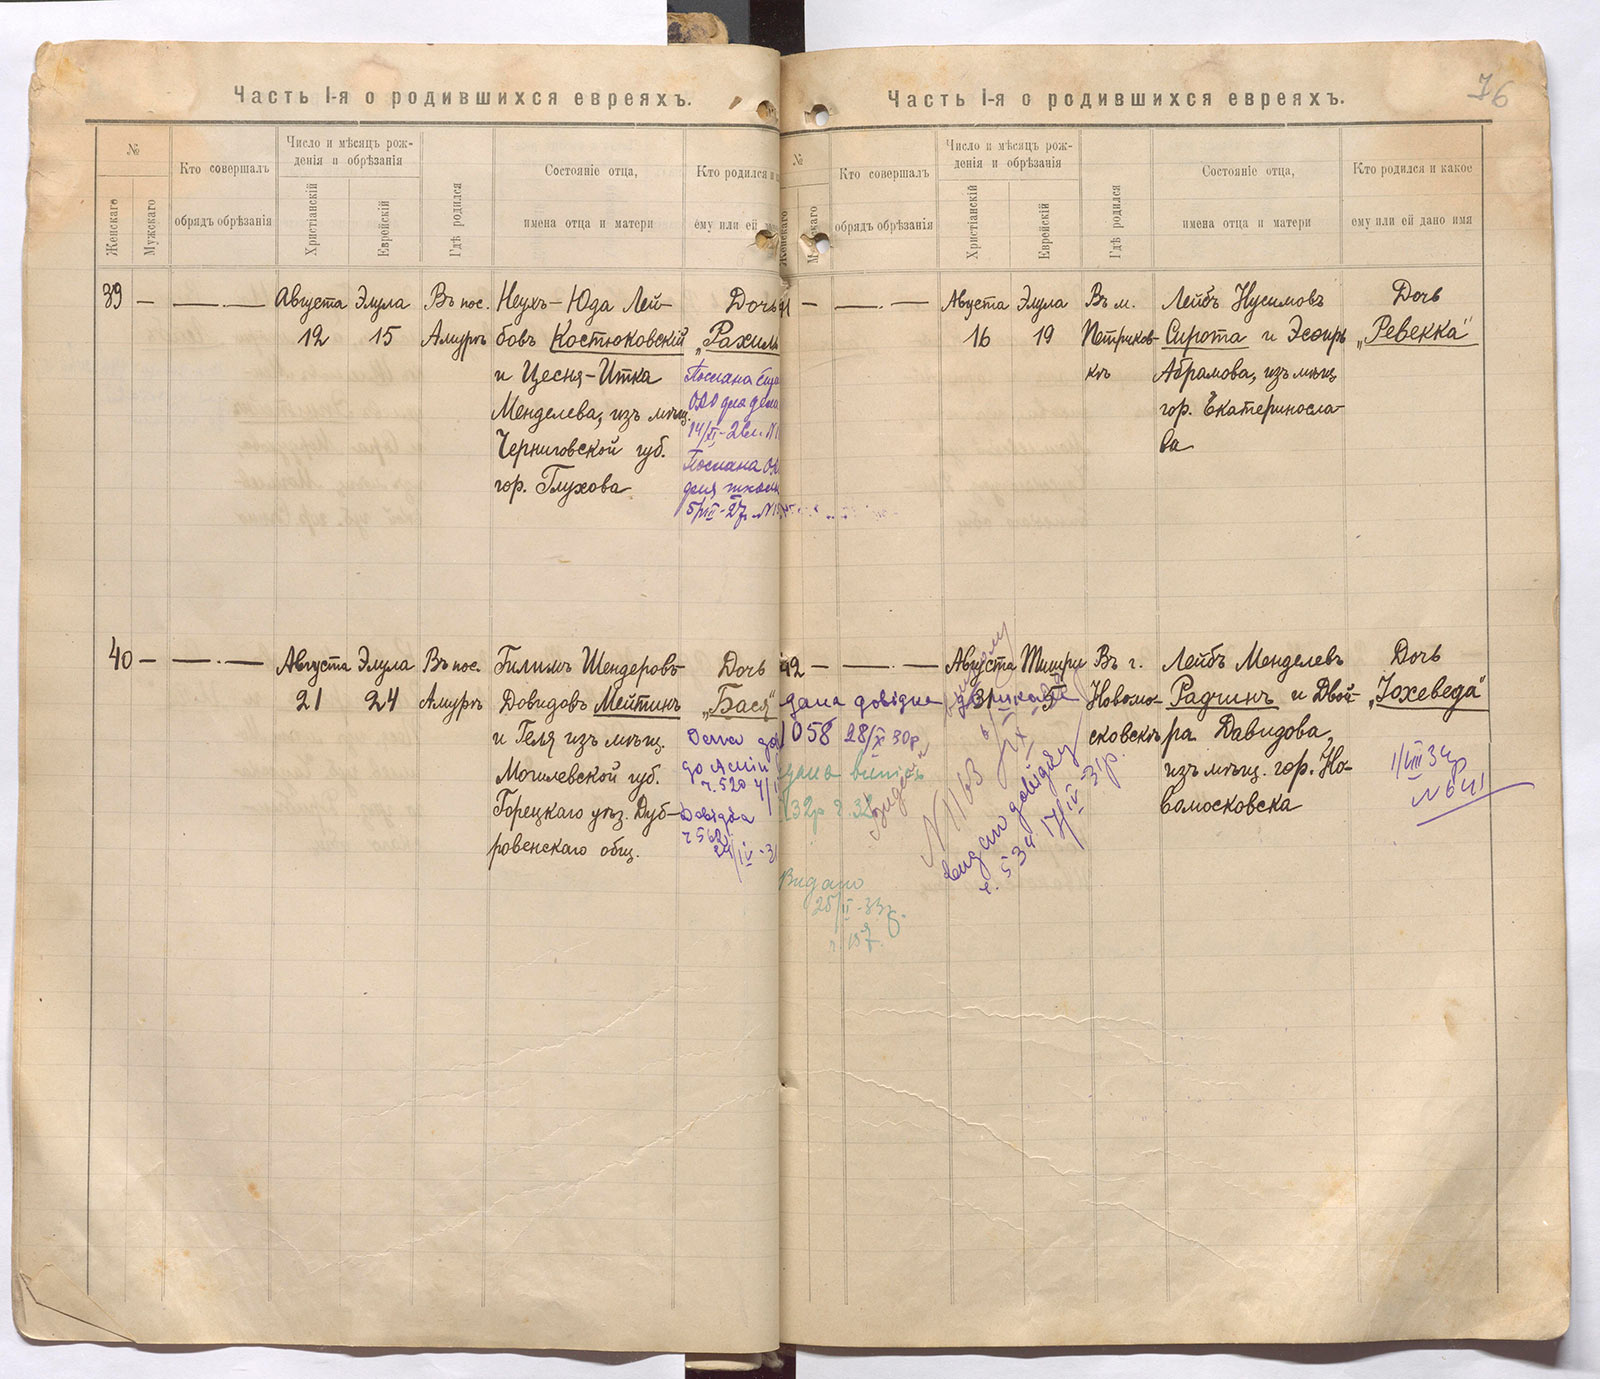 Часть I-я о родившихся евреяхъ.
№
Женскаго
Мужскаго
Кто совершалъ
обрядъ обрѣзанія
Число и мѣсяцъ рож-
денія и обрѣзанія
Христіанскій
Еврейскій
Гдѣ родился
Состояніе отца,
имена отца и матери
Кто родился и
ему или ей
39 — — . —
Августа
12
Элула
15
Въ пос.
Амуръ
Неухъ-Юда Лей-
бовъ Костюковскій
и Цесня-Итка
Менделева, изъ мѣщ.
Черниговской губ.
гор. Глухова
Дочь
„Рахиль
Послана
14/XI-26г. №
Послана
для
40 — — . —
Августа
21
Элула
24
Въ пос.
Амуръ
Гилимъ Шендеровъ
Довидовъ Мейтинъ
и Геля изъ мѣщ.
Могилевской губ.
Горецкаго уѣз. Дуб-
ровенскаго общ.
Дочь
„Бася“
ч. 520
Довідка
ч 562
24/IV-31
76
Часть I-я о родившихся евреяхъ.
№
Женскаго
Кто совершалъ
обрядъ обрѣзанія
Число и мѣсяцъ рож-
денія и обрѣзанія
Христіанскій
Еврейскій
Гдѣ родился
Состояніе отца,
имена отца и матери
Кто родился и какое
ему или ей дано имя
— — . —
Августа
16
Элула
19
Въ м.
Петриков-
кѣ
Лейбъ Нусимовъ
Сирота и Эсѳирь
Абрамова, изъ мѣщ.
гор. Екатериносла-
ва
Дочь
„Ревекка“
42 — — . —
Августа
31
Тишри
5
Въ г.
Новомо-
сковскѣ
Лейбъ Менделевъ
Радчинъ и Двой-
ра Давидова,
изъ мѣщ. гор. Но-
вомосковска
Дочь
„Іохеведа“
дана довідка
1058 28/X 30р
32р ч. 32
№ 1163
Видан довідку
ч. 534 17/IV 31р.
Видано
25/II-33р.
1/VIII 34р
№ 641